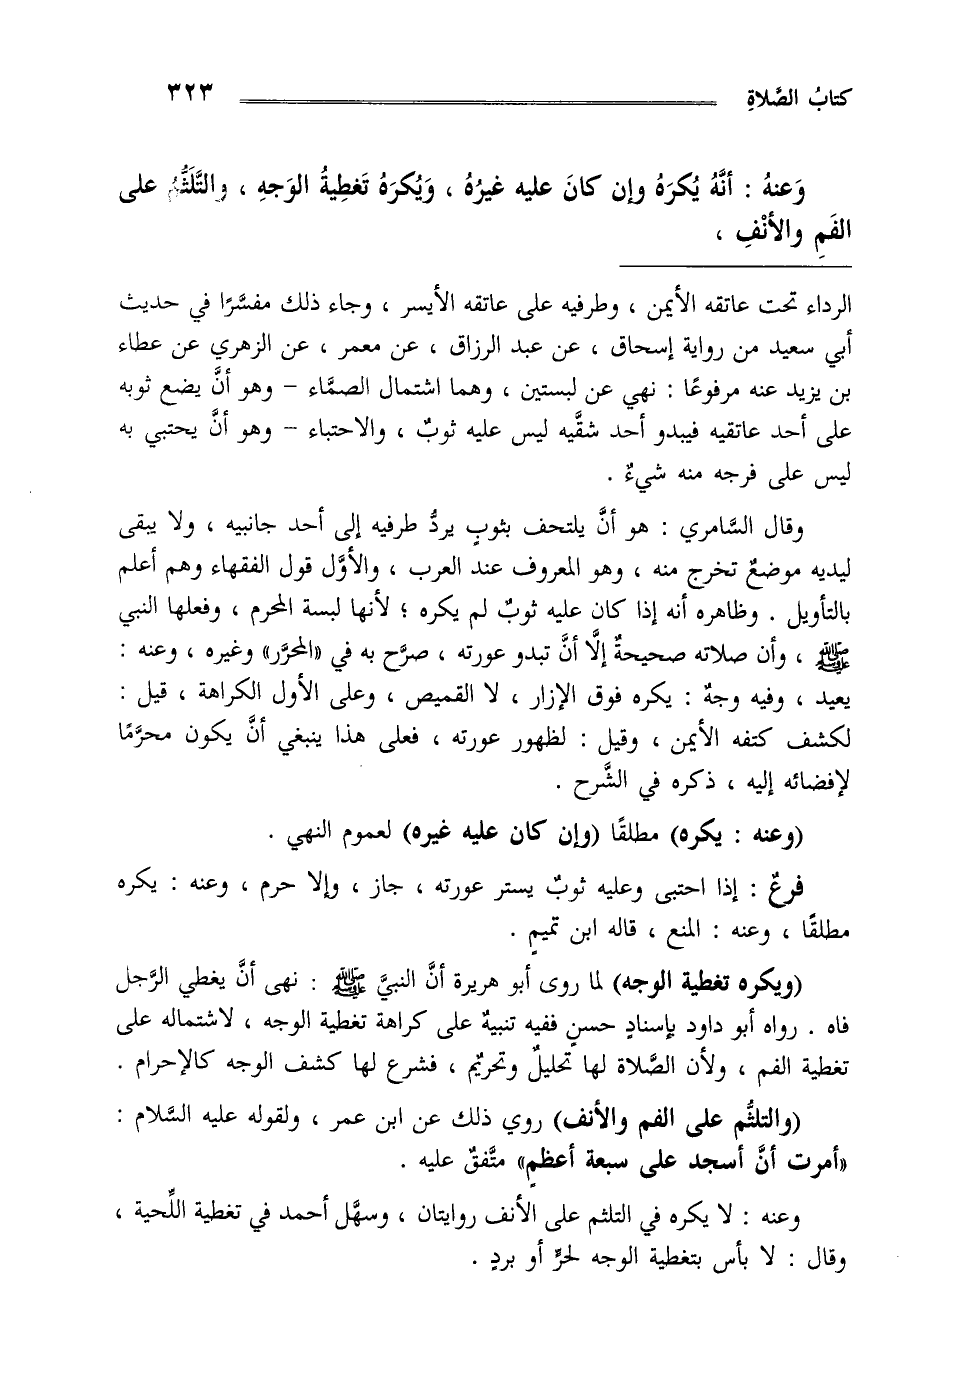 كتابُ الصَّلاةِ ٣٢٣
وَعنهُ : أنَّهُ يُكرَهُ وإن كانَ عليه غيرُهُ ، وَيُكرَهُ تَغطِيةُ الوَجهِ ، والتَّلَثُّم على
الفَمِ والأنْفِ ،
الرداء تحت عاتقه الأيمن ، وطرفيه على عاتقه الأيسر ، وجاء ذلك مفسَّرًا في حديث
أبي سعيد من رواية إسحاق ، عن عبد الرزاق ، عن معمر ، عن الزهري عن عطاء
بن يزيد عنه مرفوعًا : نهي عن لبستين ، وهما اشتمال الصمَّاء – وهو أنَّ يضع ثوبه
على أحد عاتقيه فيبدو أحد شقَّيه ليس عليه ثوبٌ ، والاحتباء – وهو أنَّ يحتبي به
ليس على فرجه منه شيءٌ .
وقال السَّامري : هو أنَّ يلتحف بثوبٍ يردُّ طرفيه إلى أحد جانبيه ، ولا يبقى
ليديه موضعٌ تخرج منه ، وهو المعروف عند العرب ، والأوَّل قول الفقهاء وهم أعلم
بالتأويل . وظاهره أنه إذا كان عليه ثوبٌ لم يكره ؛ لأنها لبسة المحرم ، وفعلها النبي
ﷺ ، وأن صلاته صحيحةٌ إلَّا أنَّ تبدو عورته ، صرَّح به في «المحرَّر» وغيره ، وعنه :
يعيد ، وفيه وجهٌ : يكره فوق الإزار ، لا القميص ، وعلى الأول الكراهة ، قيل :
لكشف كتفه الأيمن ، وقيل : لظهور عورته ، فعلى هذا ينبغي أنَّ يكون محرَّمًا
لإفضائه إليه ، ذكره في الشَّرح .
(وعنه : يكره) مطلقًا (وإن كان عليه غيره) لعموم النهي .
فرعٌ : إذا احتبى وعليه ثوبٌ يستر عورته ، جاز ، وإلا حرم ، وعنه : يكره
مطلقًا ، وعنه : المنع ، قاله ابن تميمٍ .
(ويكره تغطية الوجه) لما روى أبو هريرة أنَّ النبيَّ ﷺ : نهى أنَّ يغطي الرَّجل
فاه . رواه أبو داود بإسنادٍ حسنٍ ففيه تنبيهٌ على كراهة تغطية الوجه ، لاشتماله على
تغطية الفم ، ولأن الصَّلاة لها تحليلٌ وتحريمٌ ، فشرع لها كشف الوجه كالإحرام .
(والتلثُّم على الفم والأنف) روي ذلك عن ابن عمر ، ولقوله عليه السَّلام :
«أمرت أنَّ أسجد على سبعة أعظمٍ» متَّفقٌ عليه .
وعنه : لا يكره في التلثم على الأنف روايتان ، وسهَّل أحمد في تغطية اللِّحية ،
وقال : لا بأس بتغطية الوجه لحرٍّ أو بردٍ .